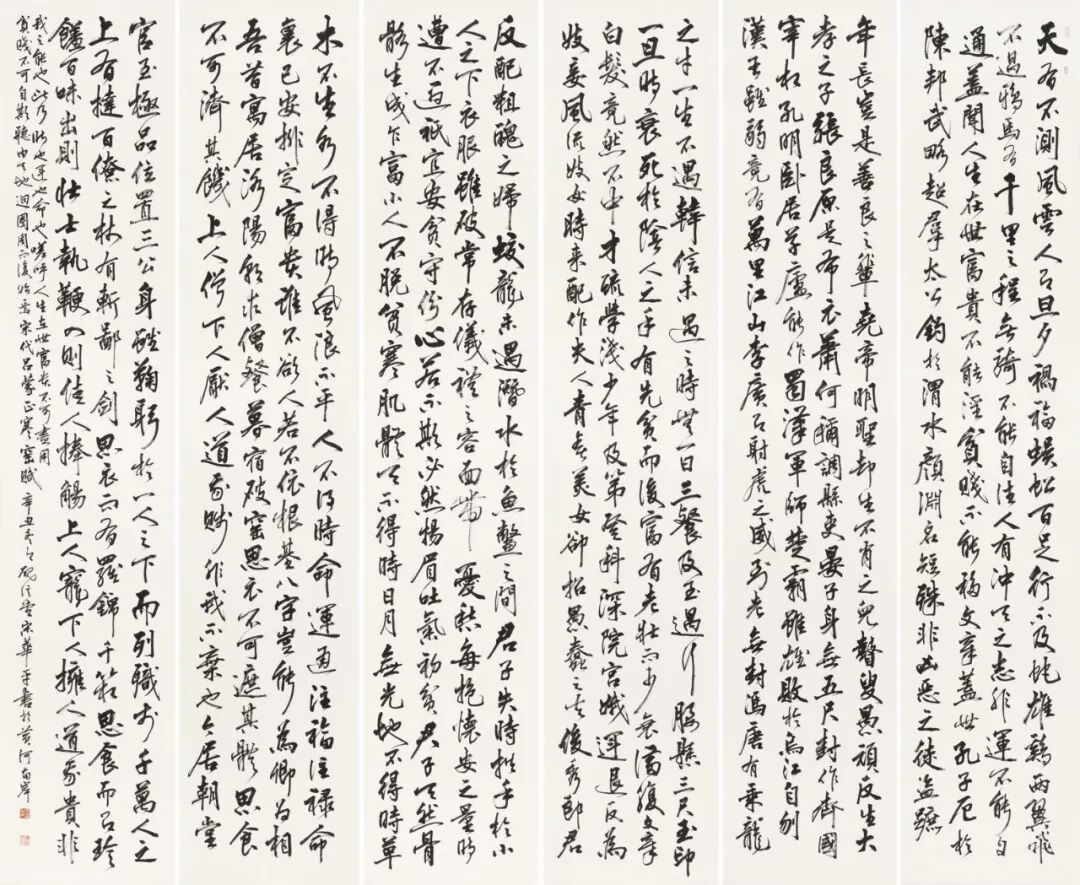 天有不測風雲人有旦夕禍福蜈蚣百足行不及蛇雄鷄兩翼飛
不過鴉馬有千里之程無騎不能自往人有沖天之志非運不能自
通蓋聞人生在世富貴不能淫貧賤不能移文章蓋世孔子厄於
陳邦武略超群太公釣於渭水顏淵命短殊非凶惡之徒盜蹠
年長豈是善良之輩堯帝明聖却生不肖之兒瞽叟愚頑反生大
孝之子張良原是布衣蕭何稱謂縣吏晏子身無五尺封作齊國
宰相孔明臥居草廬能作蜀漢軍師楚霸雖雄敗於烏江自刎
漢王雖弱竟有萬里江山李廣有射虎之威到老無封馮唐有乘龍
之才一生不遇韓信未遇之時無一日三餐及至遇行腰懸三尺玉印
一旦時衰死於陰人之手有先貧而後富有老壯而少衰滿腹文章
白髮竟然不中才疏學淺少年及第登科深院宮娥運退反為
妓妾風流妓女時來配作夫人青春美女卻招愚蠢之夫俊秀郎君
反配粗醜之婦蛟龍未遇潛水於魚鱉之間君子失時拱手於小
人之下衣服雖破常存儀禮之容面帶憂愁每抱懷安之量時
遭不遇祇宜安貧守份心若不欺必然揚眉吐氣初貧君子天然骨
骼生成乍富小人不脫貧寒肌體天不得時日月無光地不得時草
木不生水不得時風浪不平人不得時命運通注福注祿命
裏已安排定富貴誰不欲人若不依根基八字豈能為卿為相
吾昔寓居洛陽朝求僧餐暮宿破窯思衣不可遮其體思食
不可濟其饑上人憎下人厭人道我賤非我不棄也今居朝堂
官至極品位置三公身雖鞠躬於一人之下而列職於千萬人之
上有撻百僚之杖有斬鄙之劍思衣而有羅錦千箱思食而有珍
饈百味出則壯士執鞭入則佳人捧觴上人寵下人擁人道我貴非
我之能也此乃時也運也命也嗟呼人生在世富貴不可盡用
貧賤不可自欺聽由天地迴圜周而復始焉宋代呂蒙正寒窑賦 辛丑冬 宋華平書於黃河南岸